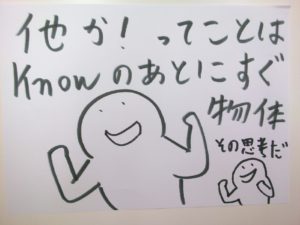 他か!ってことは
Knowのあとにすぐ
物体
その思考だ